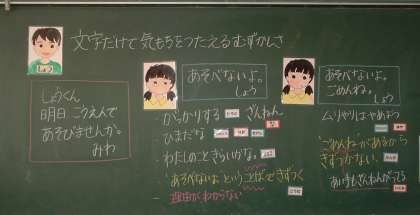 文字だけで気もちをつたえるむずかしさ
しょう
しょうくん
明日、こうえんで
あそびませんか。
みわ
あそべないよ。
しょう
・がっかりする ざんねん
・ひまだな
・わたしのこときらいかな。
・「あそべないよ」ということばできずつく
・理由がわからない
あそべないよ。
ごめんね。
しょう
ムリやりはやめよう
・「ごめんね」があるから
きずつかない。
あい手もざんねんがってる